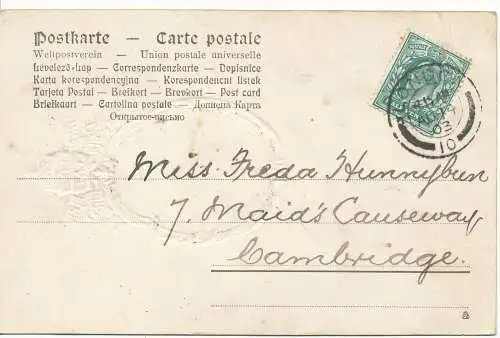 Postkarte — Carte postale
Weltpostverein — Union postale universelle
Levelező-Lap — Correspondenzkarte — Dopisnice
Karta korespondencyjna — Korespondenčni listek
Tarjeta Postal — Breifkort — Brevkort — Post card
Briefkaart — Cartolina postale — Дописна Карта
Открытое-письмо
03
10
Miss Freda Hunnybun
7, Maid's Causeway,
Cambridge.